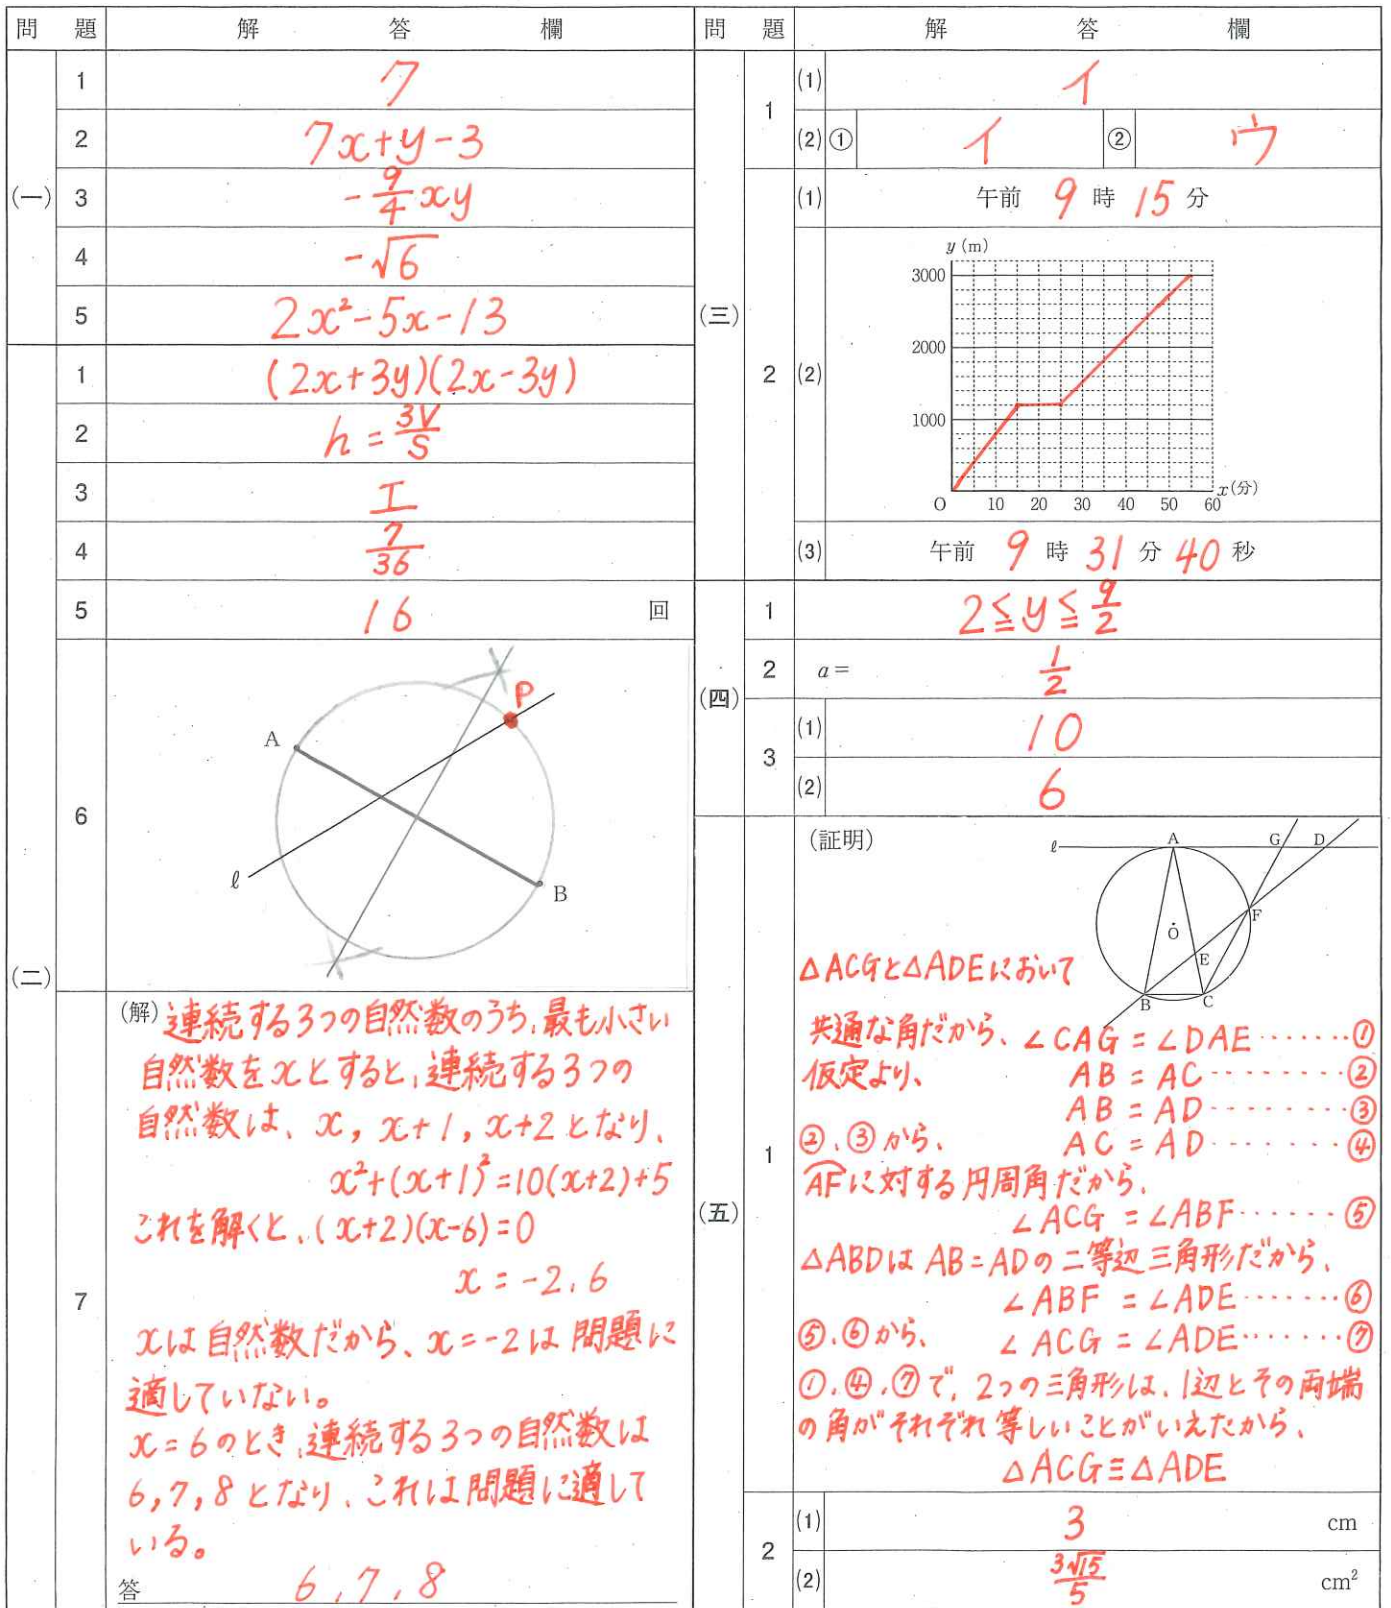 問 題 解 答 欄
(一)
1 7
2 7x+y-3
3 -9/4 xy
4 -√6
5 2x²-5x-13
(二)
1 (2x+3y)(2x-3y)
2 h=3V/S
3 エ
4 7/36
5 16 回
6
A
P
ℓ
B
7
(解) 連続する3つの自然数のうち、最も小さい
自然数をxとすると、連続する3つの
自然数は、x, x+1, x+2となり、
x²+(x+1)²=10(x+2)+5
これを解くと、(x+2)(x-6)=0
x=-2、6
xは自然数だから、x=-2は問題に
適していない。
x=6のとき、連続する3つの自然数は
6,7,8となり、これは問題に適して
いる。
答 6,7,8
問 題 解 答 欄
(三)
1
(1) イ
(2) ① イ ② ウ
2
(1) 午前 9 時 15 分
(2)
y (m)
3000
2000
1000
O 10 20 30 40 50 60 x(分)
(3) 午前 9 時 31 分 40 秒
(四)
1 2≦y≦9/2
2 a= 1/2
3
(1) 10
(2) 6
(五)
1
(証明)
ℓ A G D
F
O
E
B C
△ACGと△ADEにおいて
共通な角だから、∠CAG=∠DAE……①
仮定より、 AB=AC……②
AB=AD……③
②、③から、 AC=AD……④
⌒AFに対する円周角だから、
∠ACG=∠ABF……⑤
△ABDはAB=ADの二等辺三角形だから、
∠ABF=∠ADE……⑥
⑤、⑥から、 ∠ACG=∠ADE……⑦
①、④、⑦で、2つの三角形は、1辺とその両端
の角がそれぞれ等しいことがいえたから、
△ACG≡△ADE
2
(1) 3 cm
(2) 3√15/5 cm²